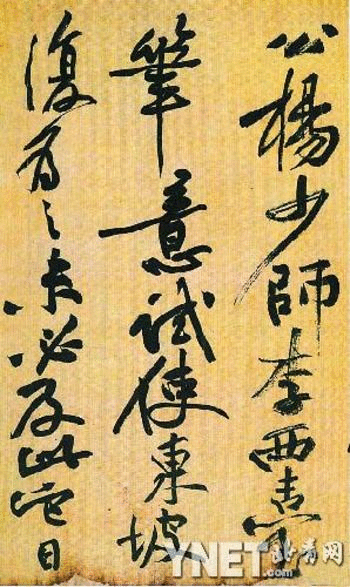 公楊少師李西臺
筆意試使東坡
復為之未必及此它日
YNET.com
北青网